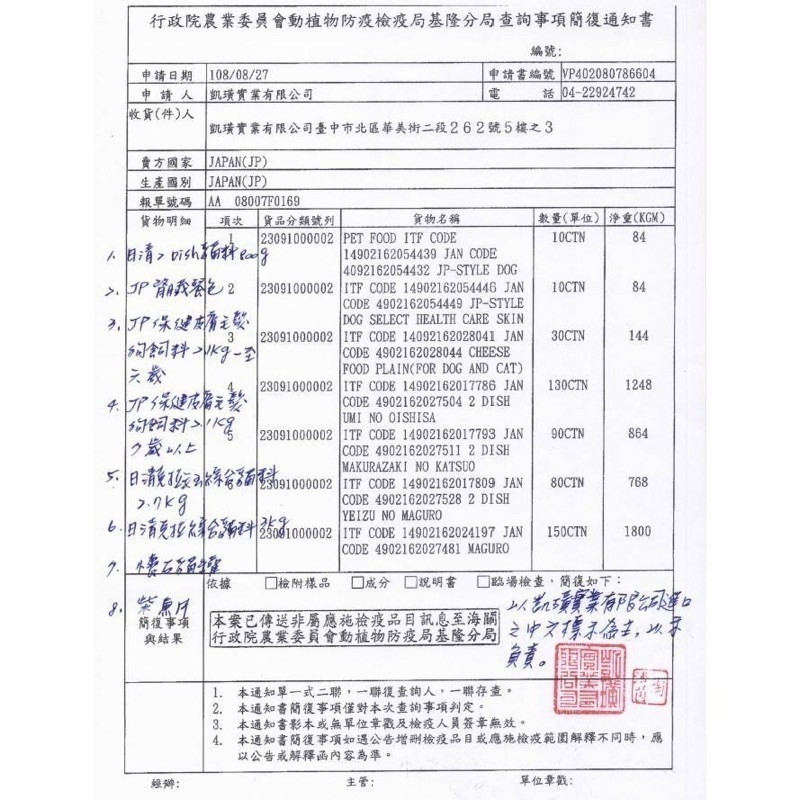 行政院農業委員會動植物防疫檢疫局基隆分局查詢事項簡復通知書
編號:
申請日期 108/08/27 申請書編號 VP402080786604
申請人 凱璜實業有限公司 電話 04-22924742
收貨(件)人
凱璜實業有限公司臺中市北區華美街二段262號5樓之3
賣方國家 JAPAN(JP)
生產國別 JAPAN(JP)
報單號碼 AA 08007F0169
貨物明細 項次 貨品分類號列 貨物名稱 數量(單位) 淨重(KGM)
1 23091000002 PET FOOD ITF CODE 10CTN 84
14902162054439 JAN CODE
4092162054432 JP-STYLE DOG
2 23091000002 ITF CODE 14902162054446 JAN 10CTN 84
CODE 4902162054449 JP-STYLE
DOG SELECT HEALTH CARE SKIN
3 23091000002 ITF CODE 14092162028041 JAN 30CTN 144
CODE 4902162028044 CHEESE
FOOD PLAIN(FOR DOG AND CAT)
4 23091000002 ITF CODE 14902162017786 JAN 130CTN 1248
CODE 4902162027504 2 DISH
UMI NO OISHISA
5 23091000002 ITF CODE 14902162017793 JAN 90CTN 864
CODE 4902162027511 2 DISH
MAKURAZAKI NO KATSUO
23091000002 ITF CODE 14902162017809 JAN 80CTN 768
CODE 4902162027528 2 DISH
YEIZU NO MAGURO
23091000002 ITF CODE 14902162024197 JAN 150CTN 1800
CODE 4902162027481 MAGURO
1. 日清2Dish貓料800g
2. JP
3. JP保健皮膚毛髮
狗飼料>1kg一至
六歲
4. JP保健皮膚毛髮
狗飼料>1kg
7歲以上
5. 日清 綜合貓料
2.7kg
6. 日清 綜合貓料 3kg
7. 懷石貓罐
8. 柴魚片
依據 □檢附樣品 □成分 □說明書 □臨場檢查，簡復如下：
簡復事項與結果
本案已傳送非屬應施檢疫品目訊息至海關
行政院農業委員會動植物防疫局基隆分局
以凱璜實業有限公司進口
之中文標示為主，以示
負責。
1. 本通知單一式二聯，一聯復查詢人，一聯存查。
2. 本通知書簡復事項僅對本次查詢事項判定。
3. 本通知書影本或無單位章戳及檢疫人員簽章無效。
4. 本通知書簡復事項如遇公告增刪檢疫品目或應施檢疫範圍解釋不同時，應
以公告或解釋函內容為準。
經辦: 主管: 單位章戳: